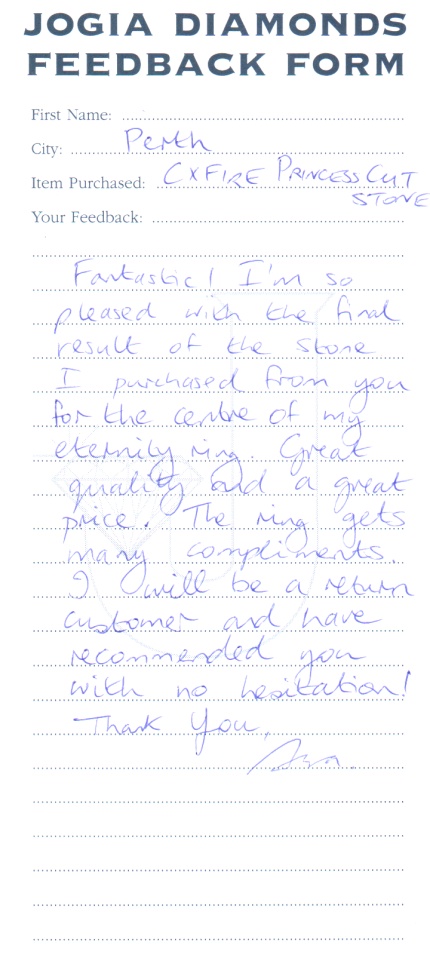 JOGIA DIAMONDS
FEEDBACK FORM
First Name:
City: Perth
Item Purchased: CXFIRE PRINCESS CUT
STONE
Your Feedback:
Fantastic! I'm so
pleased with the final
result of the stone
I purchased from you
for the centre of my
eternity ring. Great
quality and a great
price. The ring gets
many compliments.
I will be a return
customer and have
recommended you
with no hesitation!
Thank You,